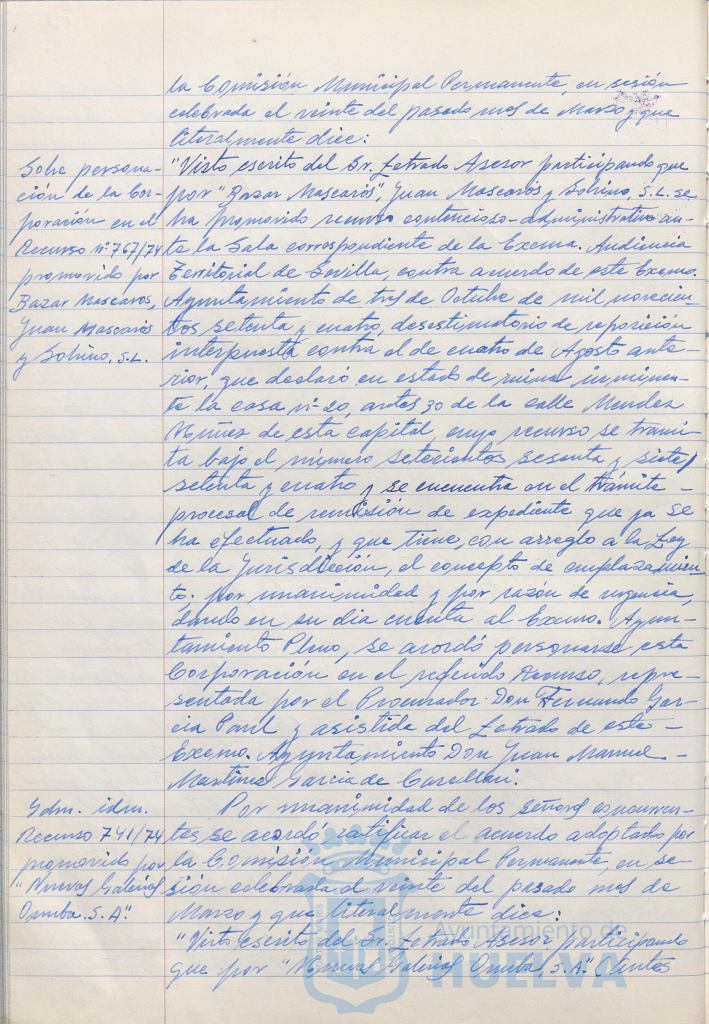 la Comisión Municipal Permanente, en sesión
celebrada el veinte del pasado mes de Marzo y que
literalmente dice:
Sobre persona-
ción de la Cor-
poración en el
Recurso nº 767/74
promovido por
Bazar Mascarós,
Juan Mascarós
y Sobrino, S.L.
"Visto escrito del Sr. Letrado Asesor participando que
por "Bazar Mascarós", Juan Mascarós y Sobrino, S.L. se
ha promovido recurso contencioso-administrativo an-
te la Sala correspondiente de la Excma. Audiencia
Territorial de Sevilla, contra acuerdo de este Excmo.
Ayuntamiento de tres de Octubre de mil novecien-
tos setenta y cuatro, desestimatorio de reposición
interpuesta contra el de cuatro de Agosto ante-
rior, que declaró en estado de ruina inminen-
te la casa nº 20, antes 30 de la calle Mendez
Núñez de esta capital, cuyo recurso se trami-
ta bajo el número setecientos sesenta y siete/
setenta y cuatro y se encuentra en el trámite
procesal de remisión de expediente que ya se
ha efectuado, y que tiene, con arreglo a la Ley
de la Jurisdicción, el concepto de emplazamien-
to; por unanimidad y por razón de urgencia,
dando en su dia cuenta al Excmo. Ayun-
tamiento Pleno, se acordó personarse esta
Corporación en el referido Recurso, repre-
sentada por el Procurador Don Fernando Gar-
cia Parel y asistida del Letrado de este
Excmo. Ayuntamiento Don Juan Manuel
Martinez Garcia de
Idm. idm.
Recurso 741/74
promovido por
"Nuevas Galerias
Omba. S.A".
Por unanimidad de los señores concurren-
tes se acordó ratificar el acuerdo adoptado por
la Comisión Municipal Permanente, en se-
sión celebrada el veinte del pasado mes de
Marzo y que literalmente dice:
"Visto escrito del Sr. Letrado Asesor participando
que por "Nuevas Galerias Omba, S.A". (antes
Ayuntamiento de
HUELVA